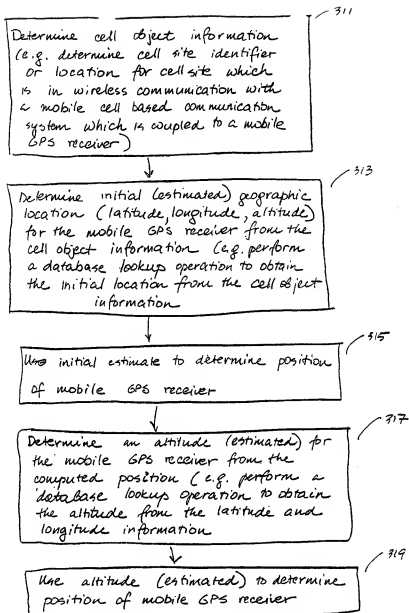 311
Determine cell object information
(e.g. determine cell site identifier
or location for cell site which
is in wireless communication with
a mobile cell based communication
system which is coupled to a mobile
GPS receiver)
313
Determine initial (estimated) geographic
location (latitude, longitude, altitude)
for the mobile GPS receiver from the
cell object information (e.g. perform
a database lookup operation to obtain
the initial location from the cell object
information
315
Use initial estimate to determine position
of mobile GPS receiver
317
Determine an altitude (estimated) for
the mobile GPS receiver from the
computed position (e.g. perform a
database lookup operation to obtain
the altitude from the latitude and
longitude information
319
Use altitude (estimated) to determine
position of mobile GPS receiver